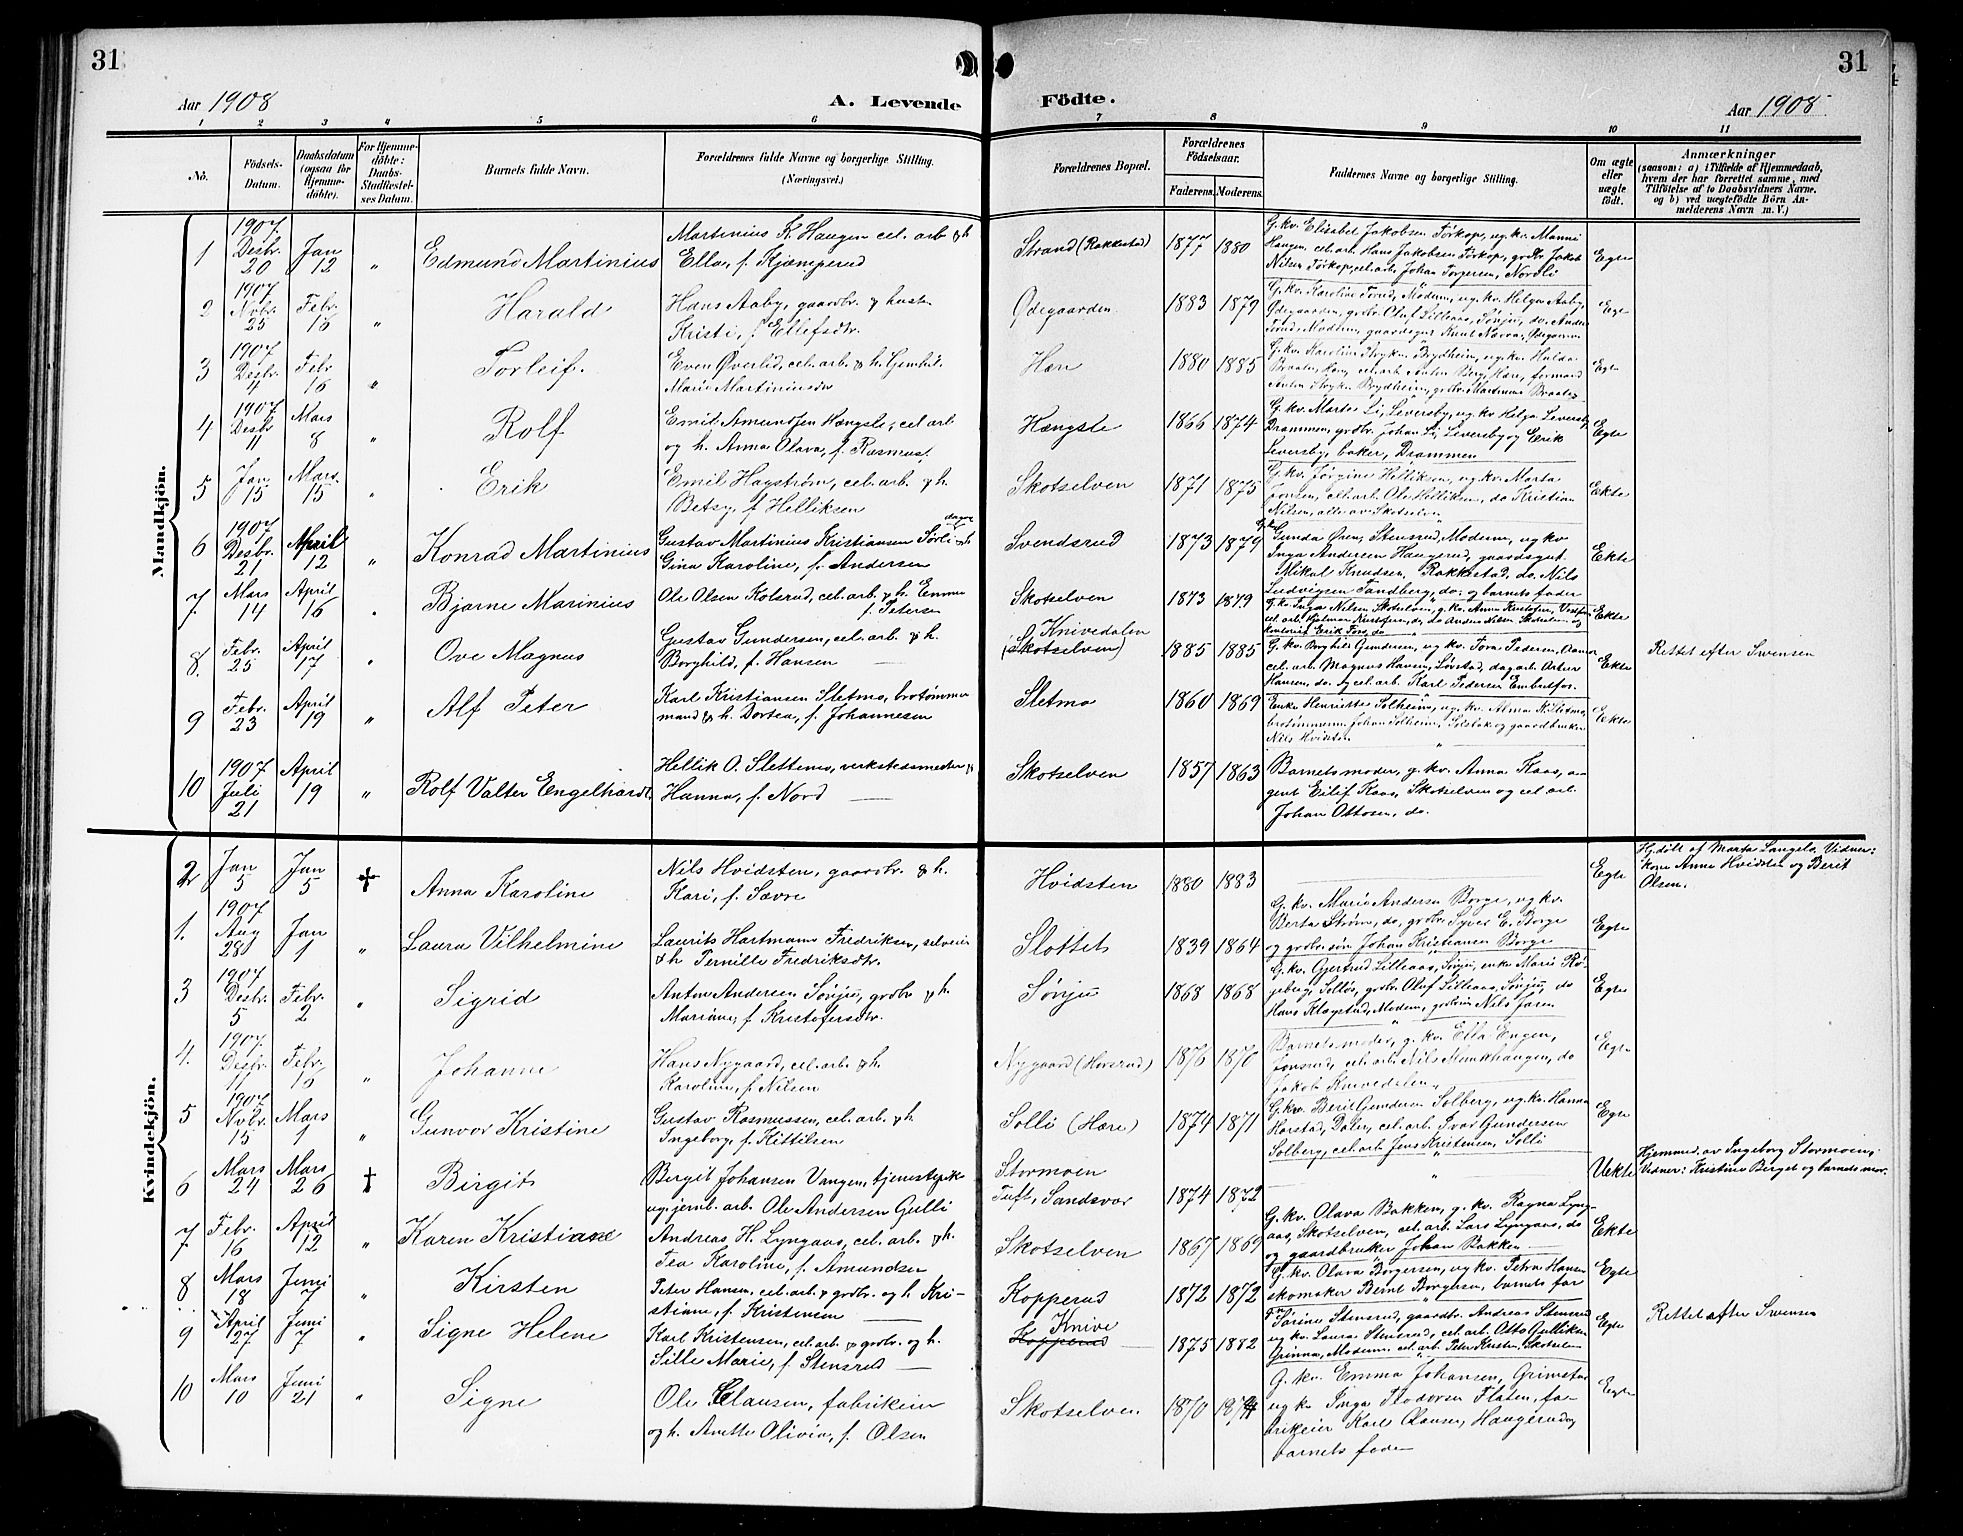 31
31
Aar 1908
A. Levende
Födte.
Aar 1908
1 2 3 4 5 6 7 8 9 10 11
No.
Födsels-
Datum.
Daabsdatum
(ogsaa for
Hjemme-
döbte).
For Hjemme-
döbte:
Daabs-
Stadfæstel-
ses Datum.
Barnets fulde Navn.
Forældrenes fulde Navne og borgerlige Stilling.
(Næringsvei.)
Forældrenes Bopæl.
Forældrenes
Födselsaar.
Faderens.
Moderens.
Faddernes Navne og borgerlige Stilling.
Om ægte
eller
uægte
födt.
Anmærkninger
(saasom: a) i Tilfælde af Hjemmedaab,
hvem der har forrettet samme, med
Tilföielse af to Daabsvidners Navne.
og b) ved uægtefödte Börn An-
melderens Navn m. V.)
Mandkjön.
1
1907
Desbr.
20
Jan
12
"
Edmund Martinius
Martinius K. Haugen cel. arb. & h
Ella, f. Kjæmperud
Strand (Rakkestad)
1877
1880
G. kv. Elisabet Jakobsen Torkop, ug. kv. Manni
Haugen, cel. arb. Hans Jakobsen Torkop, grdbr Jakob
Nilsen Torkop, cel. arb. Johan Torgersen, Nordli
Egte
2
1907
Novbr.
25
Febr.
16
"
Harald
Hans Aaby, gaardbr. & hustr.
Kristi, f. Ellefsdtr.
Ødegaarden
1883
1879
G. kv. Karoline Torud, Modum, ug. kv. Helga Aaby,
Ødegaarden, grdbr. Oluf Lilleaas, Sønju, do. Anders
Torud, Modum, gaardsgut Knut Narvaa, Ødegaarden
Egte
3
1907
Desbr.
11
Febr
16
"
Torleif.
Even Øverlid, cel. arb. & h. Gunhild
Marie Martiniusdr
Hære
1880
1885
Egte
4
1907
Desbr
11
Mars
8
"
Rolf
Emil Amundsen Hængsle, cel. arb
og h. Anna Olava, f. Rasmus.
Hængsle
1866
1874
G. kv. Marte Li, Leversby, ug. kv Helga Leversby,
Drammen, grdbr. Johan Li, Leversby og Erik
Leversby, baker, Drammen
Egte
5
Jan
15
Mars
15
"
Erik
Emil Hagstrøm, cel. arb. & h.
Betsy, f. Helliksen
Skotselven
1871
1875
G. kv. Jørgine Helliksen, ug. kv. Marta
Jonsen, cel. arb. Ole Helliksen, do Kristian
Nilsen, alle av Skotselven
Ekte
6
1907
Desbr.
21
April
12
"
Konrad Martinius
Gustav Martinius Kristiansen Sørli dagarb & h
Gina Karoline, f. Andersen
Svendsrud
1873
1879
G. kv
Gunda Gren, Stensrud, Modum, ug kv
Inga Andersen Haugerud, gaardsgut
Mikal Knudsen, Rakkestad, do. Nils
Ludvigsen Tandberg, do; og barnets fader
Ekte
7.
Mars
14
April
16
"
Bjarne Marinius
Ole Olsen Kolsrud, cel. arb. & h. Emma
f. Petersen
Skotselven
1873
1879
Ekte
8.
Febr.
25
April
17
"
Ove Magnus
Gustav Gundersen, cel. arb. & h.
Borghild, f. Hansen
Knivedalen
(Skotselven)
1885
1885
G. kv. Borghild Gundersen, ug kv. Tora Pedersen, Aamot
cel. arb. Magnus Haven, Lørstad, dag. arb. Anton
Hansen, do. og cel. arb. Karl Pedersen Embretfos.
Ekte
Rettet efter Svensen
9
Febr.
23
April
19
"
Alf Peter
Karl Kristiansen Sletmo, brotømmer
mand & h. Dortea, f. Johannesen
Sletmo
1860
1869
Enke Henriette Solheim, ug. kv. Alma K. Sletmo,
brotømmerm. Johan Solheim, Solbak og gaardbruker
Nils Hvidsten
Ekte
10
1907
Juli
21
April
19
"
Rolf Valter Engelhardt
Hellik O. Slettemo, verkstedsmester &
Hanna, f. Nord
Skotselven
1857
1863
Barnets moder, g. kv. Anna Kaas, a-
gent Eilif Kaas, Skotselven og cel. arb.
Johan Ottosen, do.
Kvindekjön.
2
Jan
5
Jan
5
†
Anna Karoline
Nils Hvidsten, gaardbr. & h.
Kari, f. Savre
Hvidsten
1880
1883
Egte
Hj. døbt af Marta Langelo, Vidner:
kone Anne Hvidsten og Berit
Olsen.
1.
1907
Aug
28
Jan
1
"
Laura Vilhelmine
Laurits Hartmann Fredriksen, selveier
& h Pernille Fredriksdtr.
Slottet
1839
1864
G. kv. Marie Andersen Borge, ug kv.
Berta Strøm, do, grdbr. Syver E. Borge
og grdbr. søn Johan Kristiansen Borge
Egte
3
1907
Desbr.
5
Febr.
2
"
Sigrid
Anton Andersen Sønju, grdbr & h.
Mariane, f. Kristofersdtr.
Sønju
1868
1868
G. kv. Gjertrud Lilleaas, Sønju, enke Marie Rø-
geberg, Solløs, grdbr Oluf Lilleaas, Sønju, do
Hans Klogstad, Modum, grdbrsøn Nils Jaren
Egte
4.
1907.
Desbr.
11
Febr.
16
"
Johanne
Hans Nygaard, cel. arb. & h.
Karoline, f. Nilsen
Nygaard (Horsrud)
1876
1870
Barnets moder, g. kv. Ella Engen,
Jonsrud, cel. arb. Nils Munkhaugen, do
Jakob Knivedalen
Egte
5
1907
Nvbr.
15
Mars
1
"
Gunvor Kristine
Gustav Rasmussen, cel. arb. & h.
Ingeborg, f. Kittilsen
Solli (Hære)
1874
1871
G. kv. Berit Gundersen Solberg, ug. kv. Hanna
Harstad, Dalen, cel. arb. Ivar Gundersen
Solberg, cel. arb. Jens Kristensen, Solli
Egte
6
Mars
24
Mars
26
†
Birgit
Bergit Johansen Vangen, tjenestepike
ug. jernb. arb. Ole Andersen Gulli
Stormoen
Tuft, Sandsvær
1874
1872
"
Uekte
Hjemmed. av Ingeborg Stormoen;
Vidner: Kristine Berget og barnets mor.
7.
Febr.
16
April
12
"
Karen Kristiane
Andreas H. Lyngaas, cel. arb. & h.
Tea Karoline, f. Amundsen
Skotselven
1867
1869
G. kv. Olava Bakken, g. kv. Ragna Lyng-
aas, Skotselven, cel. arb. Lars Lyngaas, do
og gaardbruker Johan Bakken
Ekte
8
Mars
18
Juni
7
"
Kirsten
Peter Hansen, cel. arb. & grdbr. og h. Kri-
stiane, f. Kristensen
Kopperud
1872
1872
G. kv. Olava Børgersen, ug kv. Petra Hansen
skomaker Bernt Borgersen, barnets far
Egte
9
April
27
Juni
7
"
Signe Helene
Karl Kristensen, cel. arb. & grdbr. og h.
Sille Marie, f. Stensrud
Knive
Kopperud
1875
1882
Fru Sørine Stensrud, gaardbr. Andreas Stensrud
ug kv. Laura Stensrud, cel. arb. Otto Gulliksen
Grinna, Modum, cel. arb. Peter Kristen. Skotselven
Egte
Rettet efter Svensen
10
Mars
10
Juni
21
"
Signe
Ole Clausen, fabrikeier
og h. Anette Olivia, f. Olsen
Skotselven
1870
1874
G. kv. Emma Johansen, Grimstad
ug kv Inga Teodorsen Flaten, fa-
brikeier Karl Clausen, Haugerud og
barnets fader
Egte